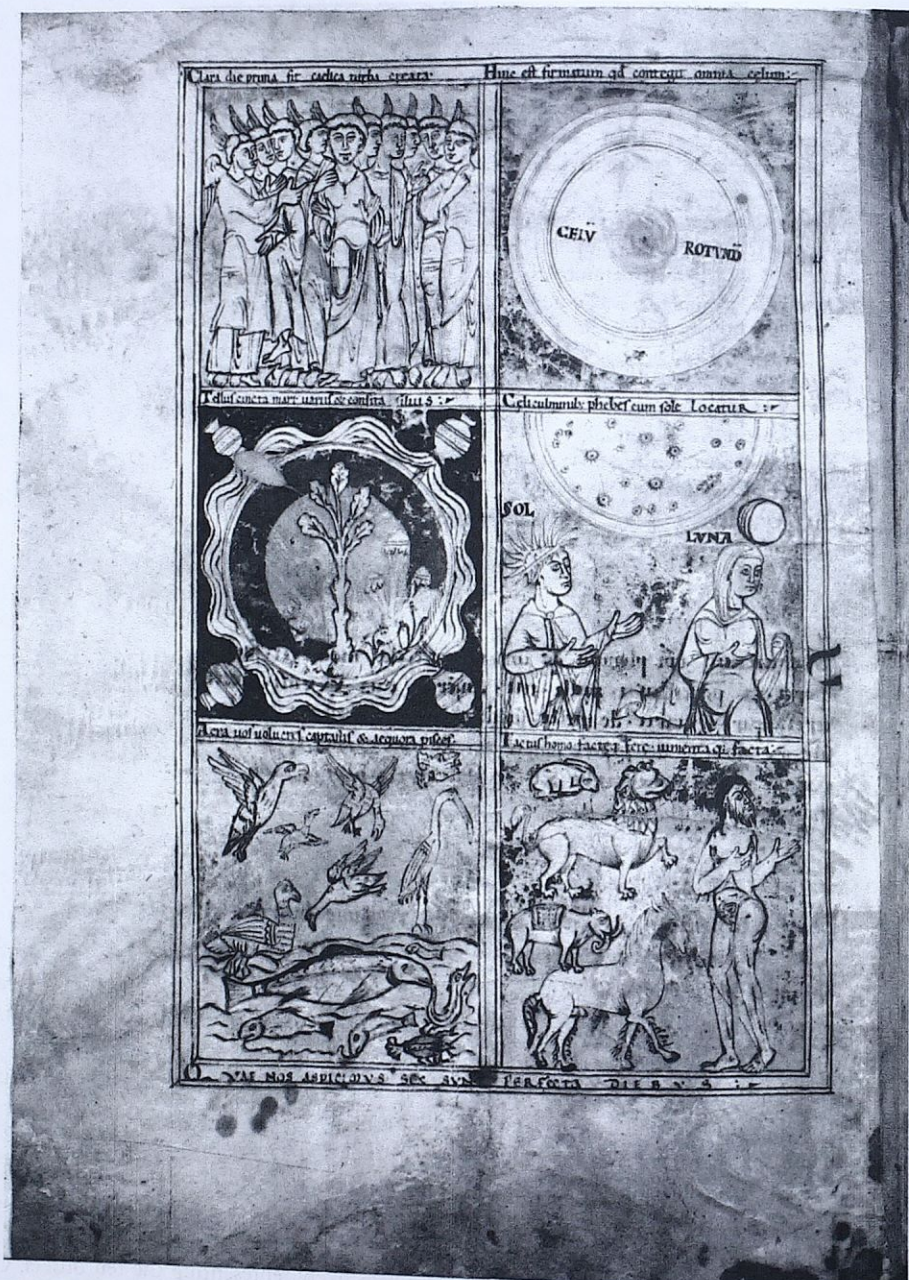 Clara die prima fit caelica turba creata·
Hinc est firmatum qd contegit omnia celum:~
CELV̄
ROTVND̄
Tellus cincta mari variis & consita silvis :~
Celi culminib; phebes cum sole locatur :~
SOL
LVNA
Aera vos volucres captatis & aequora pisces·
Factus homo factę fere iumenta qi facta:~
QVAE NOS ASPICIMVS SEX SVNT PERFECTA DIEBVS :~